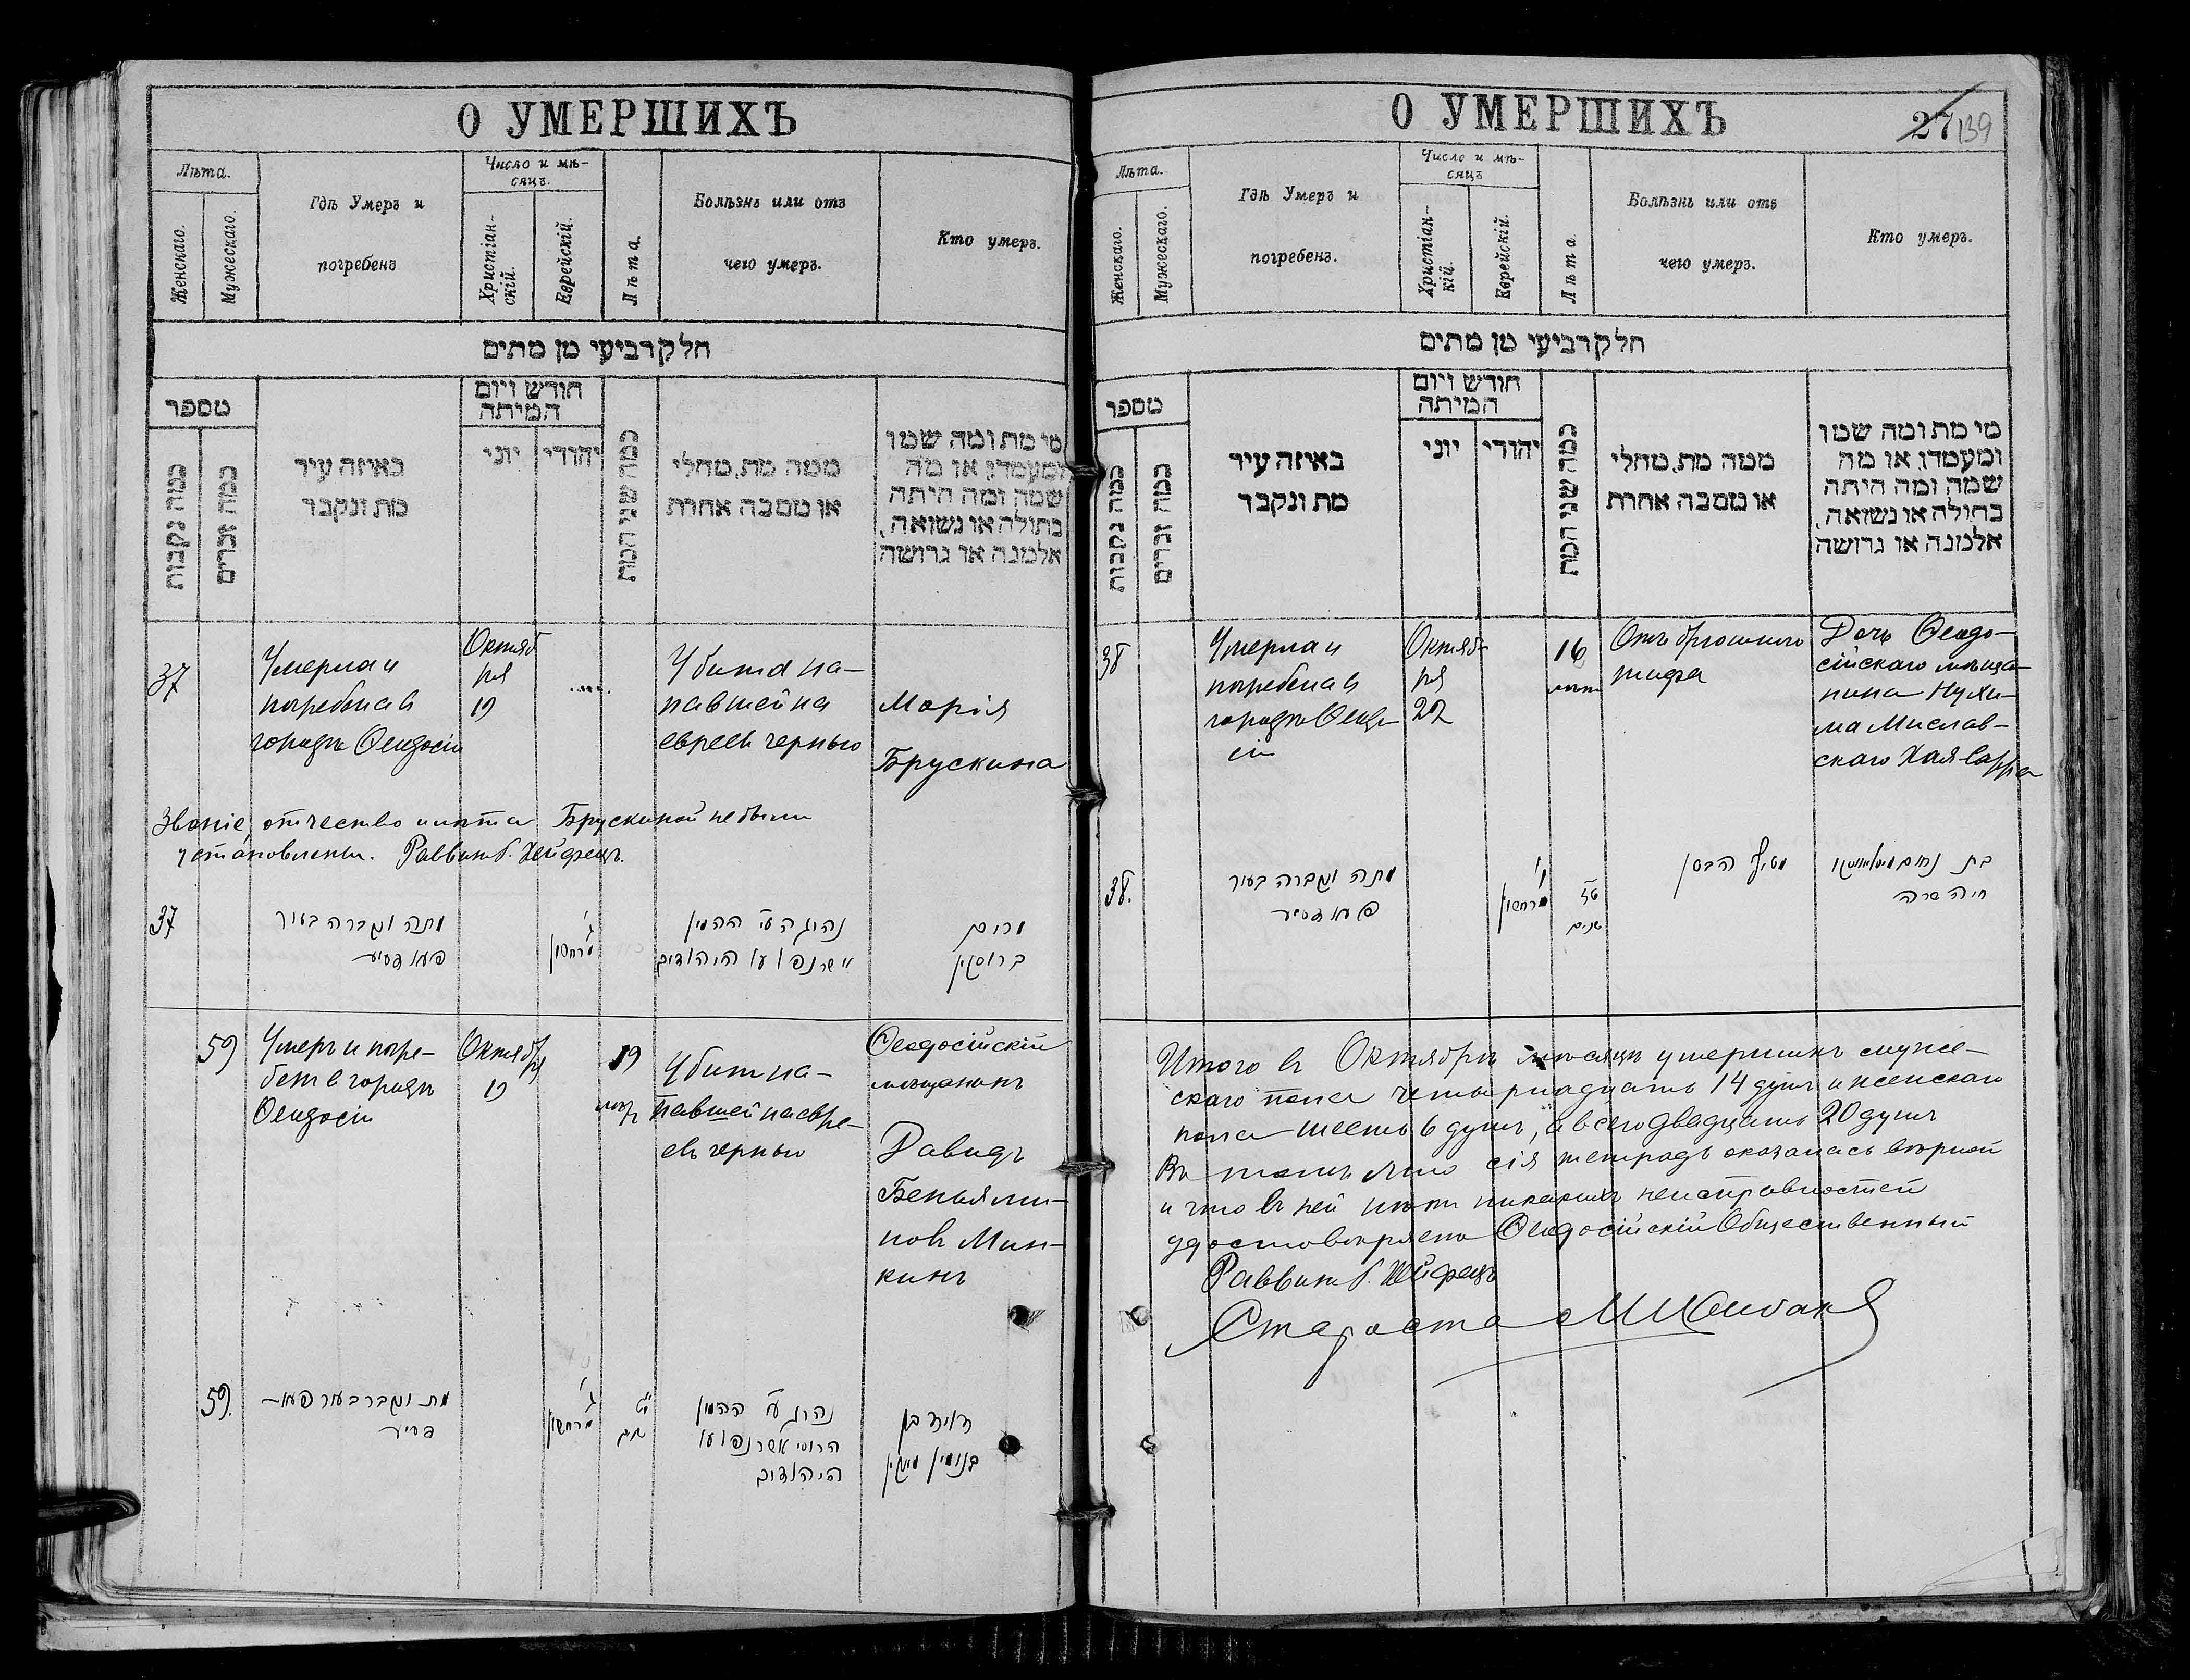 О УМЕРШИХЪ
Лѣта.
Женскаго.
Мужескаго.
Гдѣ Умеръ и
погребенъ
Число и мѣ-
сяцъ.
Христіан-
скій.
Еврейскій.
Лѣта.
Болѣзнь или отъ
чего умеръ.
Кто умеръ.
חלק רביעי מן מתים
מספר
כמה נקבות
כמה זכרים
באיזה עיר
מת ונקבר
חודש ויום
המיתה
יוני
יהודי
כמה שני המת
ממה מת, מחלי
או מסבה אחרת
מי מת ומה שמו
ומעמדו, או מה
שמה ומה היתה
בתולה או נשואה,
אלמנה או גרושה
37
Умерла и
погребена въ
городѣ Ѳеодосіи
Октяб
ря
19
Убита на-
павшей на
евреевъ чернью
Марія
Брускина
Званіе, отчество и лѣта Брускиной не были
установлены. Раввинъ Б. Хейфецъ.
37
מתה ונקברה בעיר
פעאדסיע
ג'
מרחשון
נהרגה ע"י ההמון
אשר נפלו על היהודים
מרים
ברוסקין
59
Умеръ и погре-
бенъ въ городѣ
Ѳеодосіи
Октября
19
19
лѣтъ
Убитъ на-
павшей на евре-
евъ чернью
Ѳеодосійскій
мѣщанинъ
Давидъ
Беньями-
новъ Мин-
кинъ
59.
מת ונקבר בעיר פעא-
דסיע
ג'
מרחשון
י"ט
שנים
נהרג ע"י ההמון
הרוסי אשר נפלו על
היהודים
דויד בן
בנימין מינקין
О УМЕРШИХЪ
27 139
Лѣта.
Женскаго.
Мужескаго.
Гдѣ Умеръ и
погребенъ.
Число и мѣ-
сяцъ
Христіан-
кій.
Еврейскій.
Лѣта.
Болѣзнь или отъ
чего умеръ.
Кто умеръ.
חלק רביעי מן מתים
מספר
כמה נקבות
כמה זכרים
באיזה עיר
מת ונקבר
חודש ויום
המיתה
יוני
יהודי
כמה שני המת
ממה מת, מחלי
או מסבה אחרת
מי מת ומה שמו
ומעמדו, או מה
שמה ומה היתה
בתולה או נשואה,
אלמנה או גרושה
38
Умерла и
погребена въ
городѣ Ѳеодо-
сіи
Октяб-
ря
22
16
лѣтъ
Отъ брюшного
тифа
Дочь Ѳеодо-
сійскаго мѣща-
нина Нухи-
ма Миславъ-
скаго Хая-Сарра
38.
מתה ונקברה בעיר
פעאדסיע
ו'
מרחשון
ט"ז
שנים
מטיף הבטן
בת נחום
חיה שרה
Итого въ Октябрѣ мѣсяцѣ умершихъ муже-
скаго пола четырнадцать 14 душъ и женскаго
пола шесть 6 душъ, а всего двадцать 20 душъ
Въ томъ что сія тетрадь оказалась вѣрной
и что въ ней нѣтъ никакихъ неисправностей
удостовѣряетъ Ѳеодосійскій Общественный
Раввинъ Б. Хейфецъ
Староста